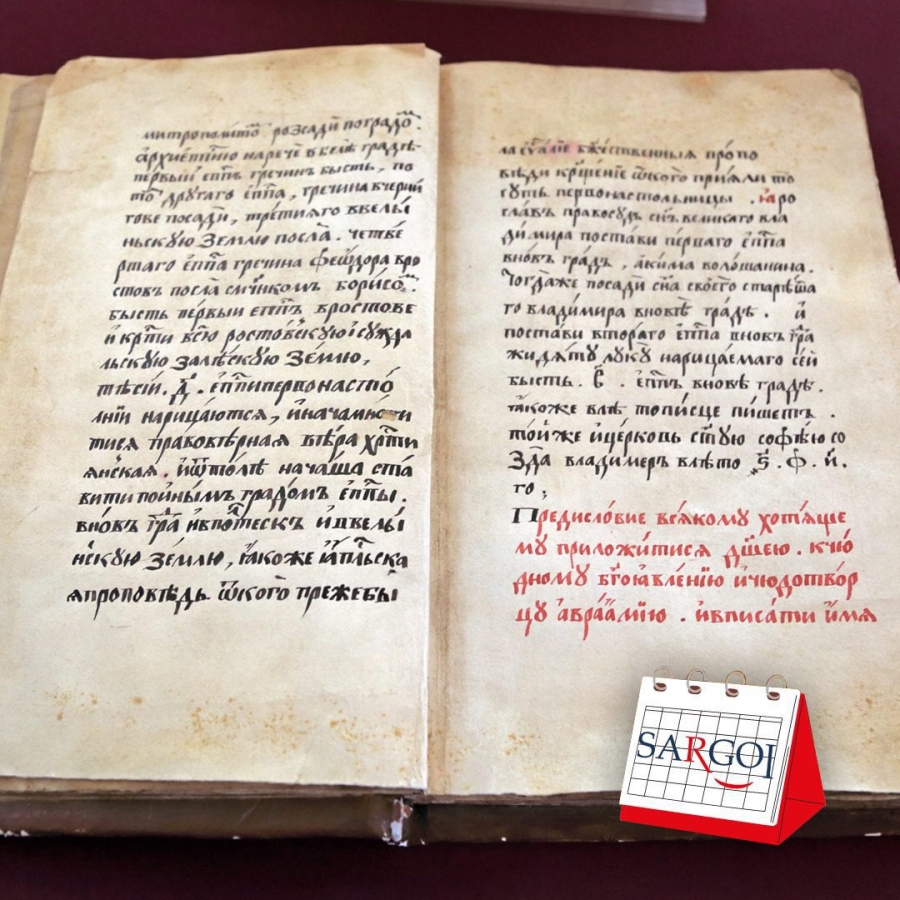 митрополитѡ̑ розсади поградѡ̑.
архиеппїю нарече вбелѣ градѣ
первыи еппъ гречинъ бысть, по
то̑ другаго еппа, гречина вчерни
гове посади, третияго ввелы
ньскую землю посла. четве
ртаго еппа гречина феѡдора вро
стовъ посла сммїнкомъ борисо̑.
бысть первыи еппъ вростове
и крти всю ростовскую исужда
льскую залѣскую землю,
тѣсїи. д҃. еппи первонасто
лнїи нарицаются, иначам
тися правовѣрная вѣра хр҃ти
янская. иѿтолѣ начаша ста
вити по инымъ градомъ еппы.
вновъ гра ивпотескъ ивелы
нскую землю, ꙗкоже ап҃льска
япроповѣдь ѿкого прежебы
ла еу҃алїе бж҃ественныя пропо
вѣди крщенїе ѿкого прияли то
суть первонастольницы . ꙗро
славъ правосудъ сн҃ъ великаго вла
димира постави перваго еппа
вновъ градъ, акима волошанина.
Тогдаже посади сн҃а своего старѣиша
го владимира вновѣ градѣ. и
постави втораго еппа вновъ гра
жидяту луку нарицаемаго сеи
бысть. в҃. еппъ вновѣ градѣ.
ꙗкоже влѣтописце пишетъ .
тои же ицерковь ст҃ую софѣю со
зда владимеръ влѣто ҂ѕ.ф.н.
го;
Предисловие всякому хотяще
му приложитися дш҃ею. кчю
дному бг҃оꙗвленїю ичюдотвор
цу авраамїю . ивписати имя
SARGOI